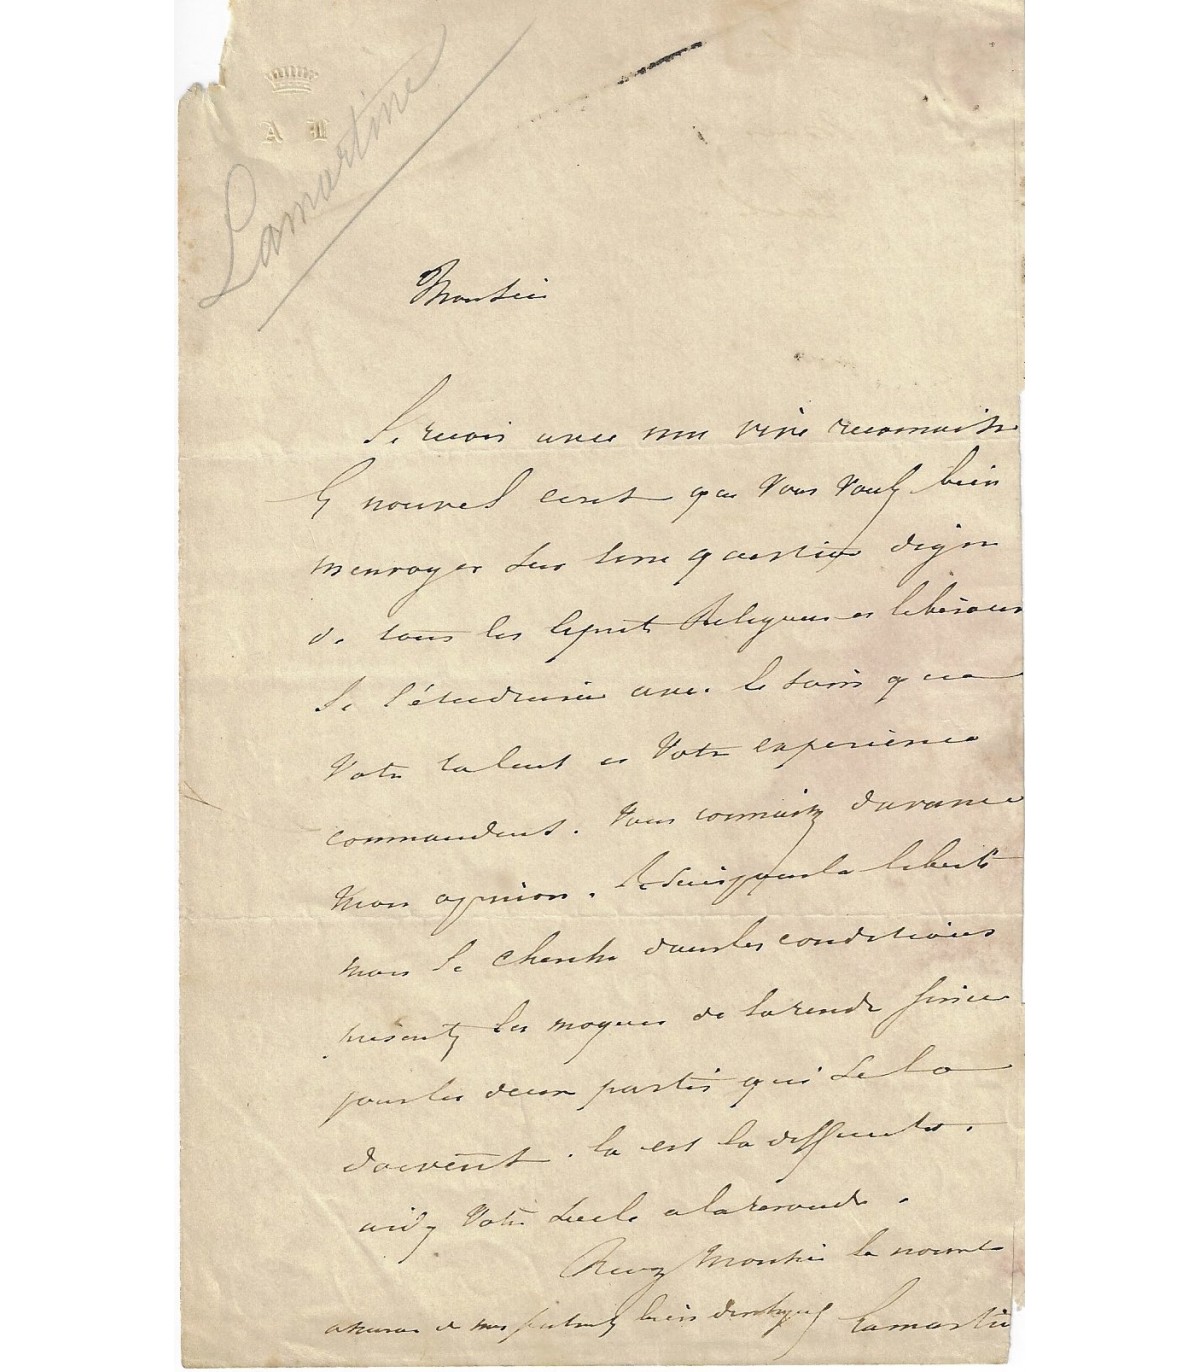 A L
Lamartine
Monsieur
Je reçois avec une vive reconnaiss
le nouvel écrit que vous voulez bien
m'envoyer sur une question digne
de tous les esprits Religieux et libéraux
Je l'étudierai avec le soin que
votre talent et votre expérience
commandent. Vous connaissez d'avance
mon opinion. Je suis pour la liberté
mais je cherche dans les conditions
présentes les moyens de la rendre sincère
pour les deux partis qui se la
doivent. là est la difficulté.
aidez votre siècle a la résoudre.
Recevez Monsieur la nouvelle
assurance de mes sentiments bien distingués Lamartine